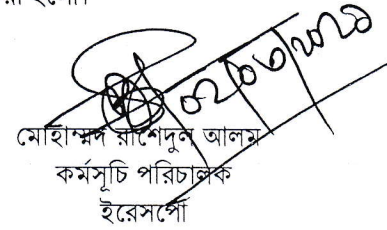 ০২/০৩/২০২১
মোহাম্মদ রাশেদুল আলম
কর্মসূচি পরিচালক
ইরেসপো